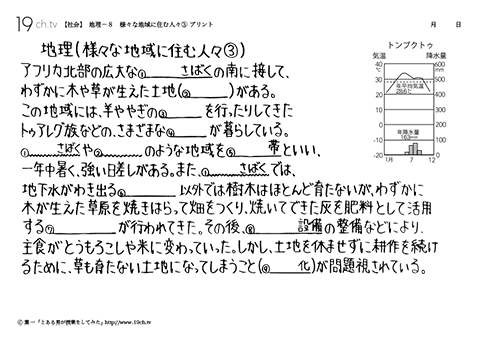 19ch.tv 【社会】 地理－8 様々な地域に住む人々③ プリント 月 日
地理(様々な地域に住む人々③)
アフリカ北部の広大な①＿＿＿さばくの南に接して、
わずかに木や草が生えた土地(②＿＿＿)がある。
この地域には、羊ややぎの③＿＿＿を行ったりしてきた
トゥアレグ族などの、さまざまな④＿＿＿が暮らしている。
①＿＿＿さばくや②＿＿＿のような地域を⑤＿＿＿帯といい、
一年中暑く、強い日差しがある。また、①＿＿＿さばくでは、
地下水がわき出る⑥＿＿＿以外では樹木はほとんど育たないが、わずかに
木が生えた草原を焼きはらって畑をつくり、焼いてできた灰を肥料として活用
する⑦＿＿＿が行われてきた。その後、⑧＿＿＿設備の整備などにより、
主食がとうもろこしや米に変わっていった。しかし、土地を休ませずに耕作を続け
るために、草も育たない土地になってしまうこと(⑨＿＿＿化)が問題視されている。
トンブクトゥ
気温 降水量
40 ℃ 600 mm
30 500
20 400
10 300
0 200
-10 100
-20 0
年平均気温
28.6℃
年降水量
163mm
1月 7 12
© 葉一「とある男が授業をしてみた」http://www.19ch.tv